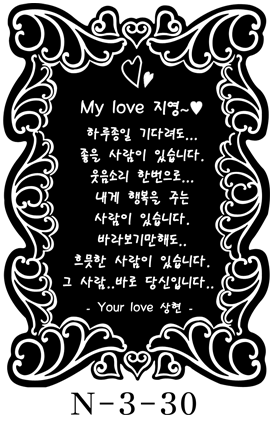 My love 지영~♥
하루종일 기다려도...
좋을 사람이 있습니다.
웃음소리 한번으로...
내게 행복을 주는
사람이 있습니다.
바라보기만해도..
흐뭇한 사람이 있습니다.
그 사람..바로 당신입니다..
- Your love 상현 -
N-3-30